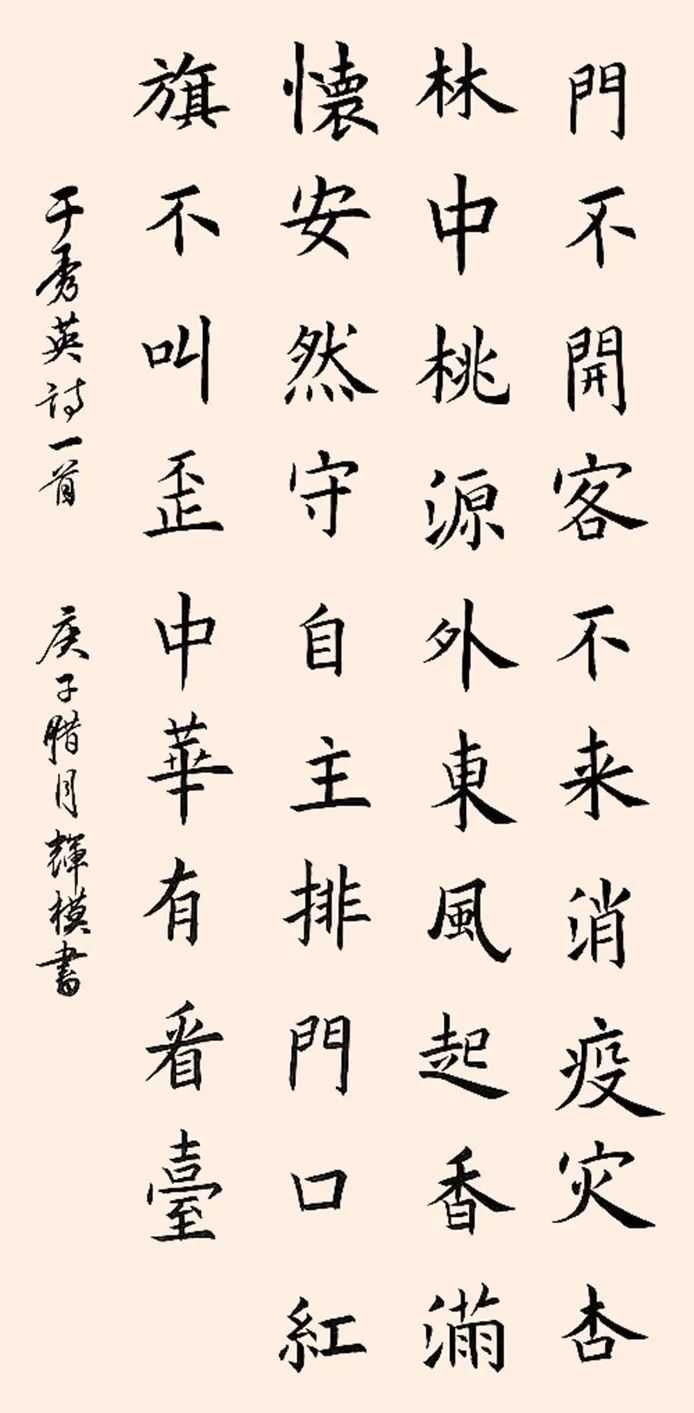 門不開客不来消疫灾杏
林中桃源外東風起香滿
懷安然守自主排門口紅
旗不叫歪中華有看臺
于秀英詩一首 庚子腊月輝模書